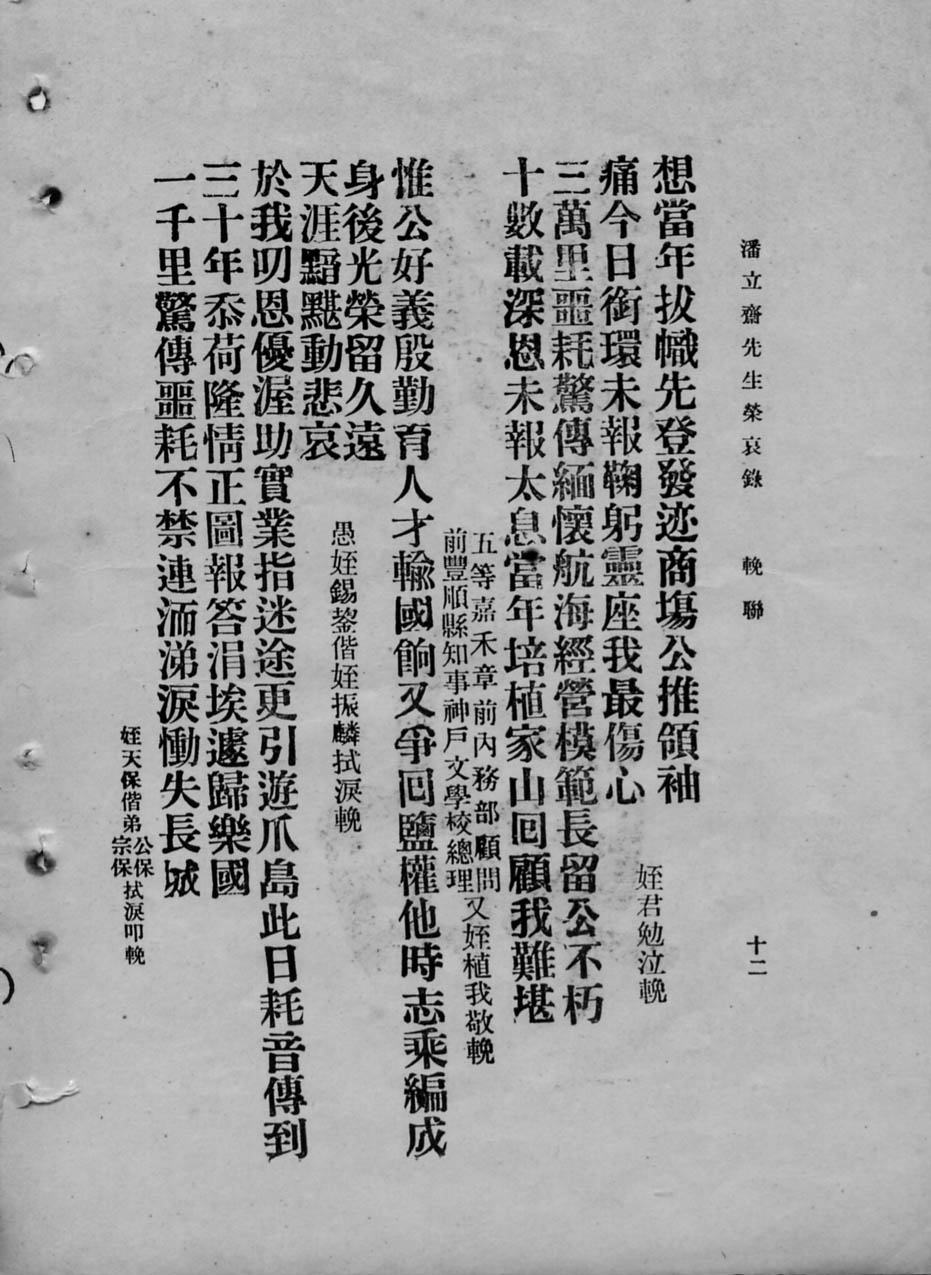 潘立齋先生榮哀錄 輓聯 十二
想當年拔幟先登發迹商塲公推領袖
痛今日銜環未報鞠躬靈座我最傷心
姪君勉泣輓
三萬里噩耗驚傳緬懷航海經營模範長留公不朽
十數載深恩未報太息當年培植家山回顧我難堪
五等嘉禾章前內務部顧問
前豐順縣知事神戶文學校總理
又姪植我敬輓
惟公好義殷勤育人才輸國餉又爭回鹽權他時志乘編成
身後光榮留久遠
愚姪錫鋆偕姪振麟拭淚輓
於我叨恩優渥助實業指迷途更引遊爪島此日耗音傳到
天涯黯黮動悲哀
三十年忝荷隆情正圖報答涓埃遽歸樂國
一千里驚傳噩耗不禁連洏涕淚慟失長城
姪天保偕弟公保宗保拭淚叩輓